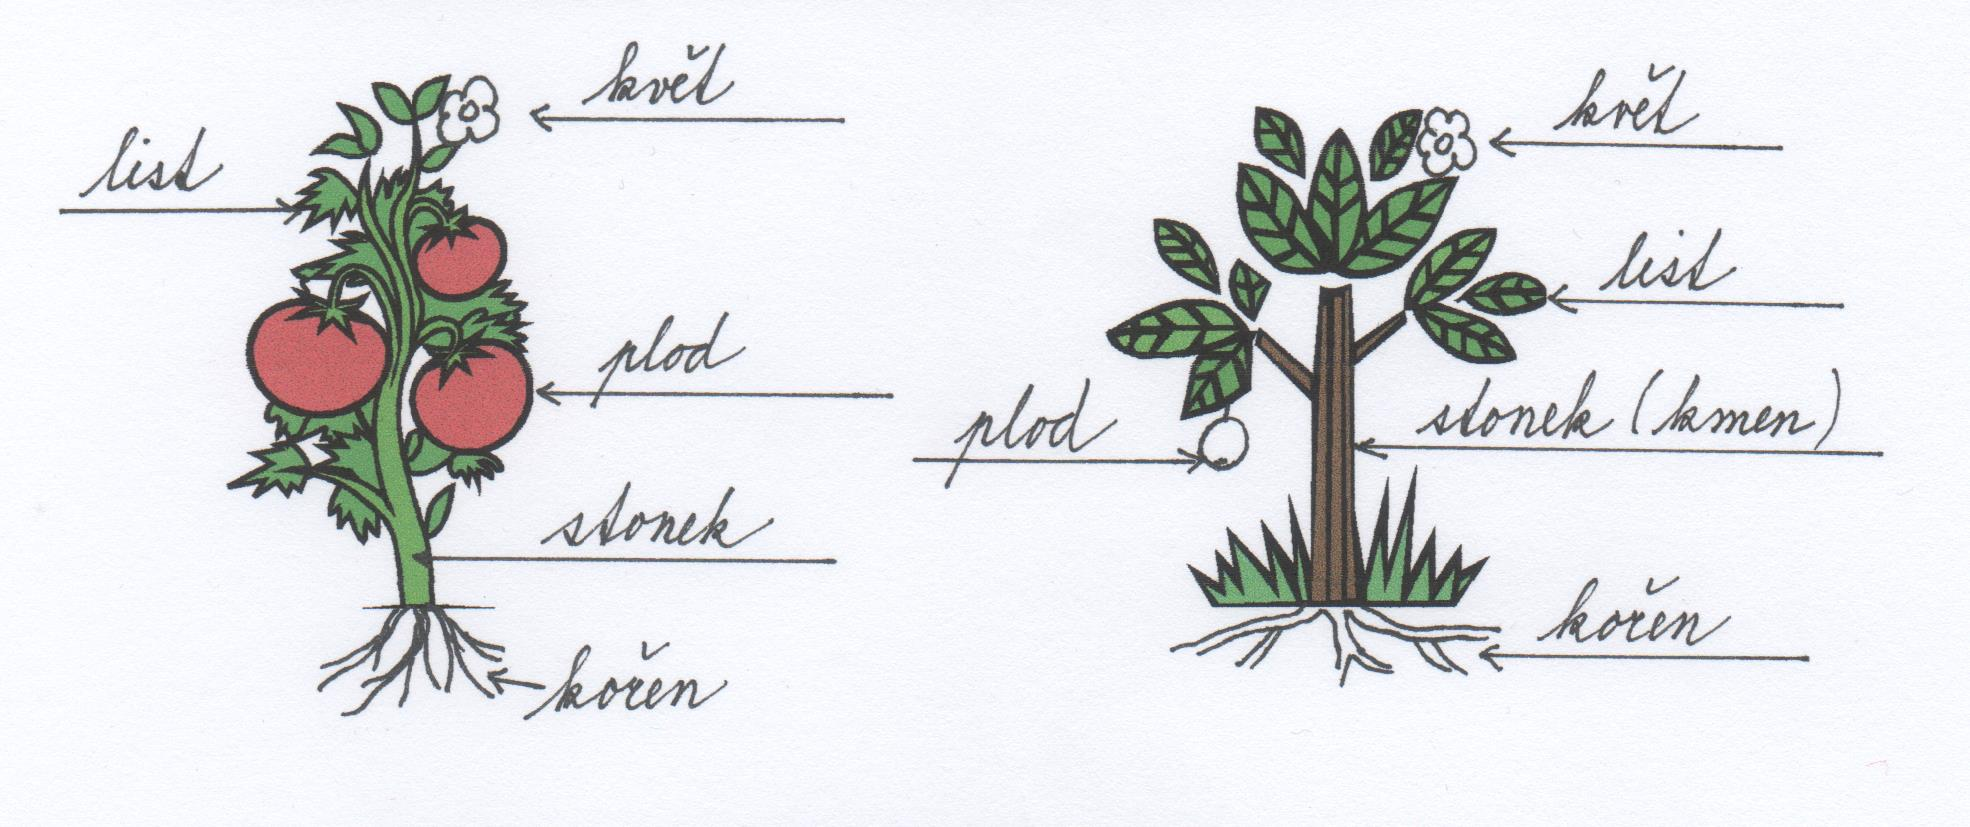 květ
list
plod
stonek
kořen
květ
list
plod
stonek (kmen)
kořen